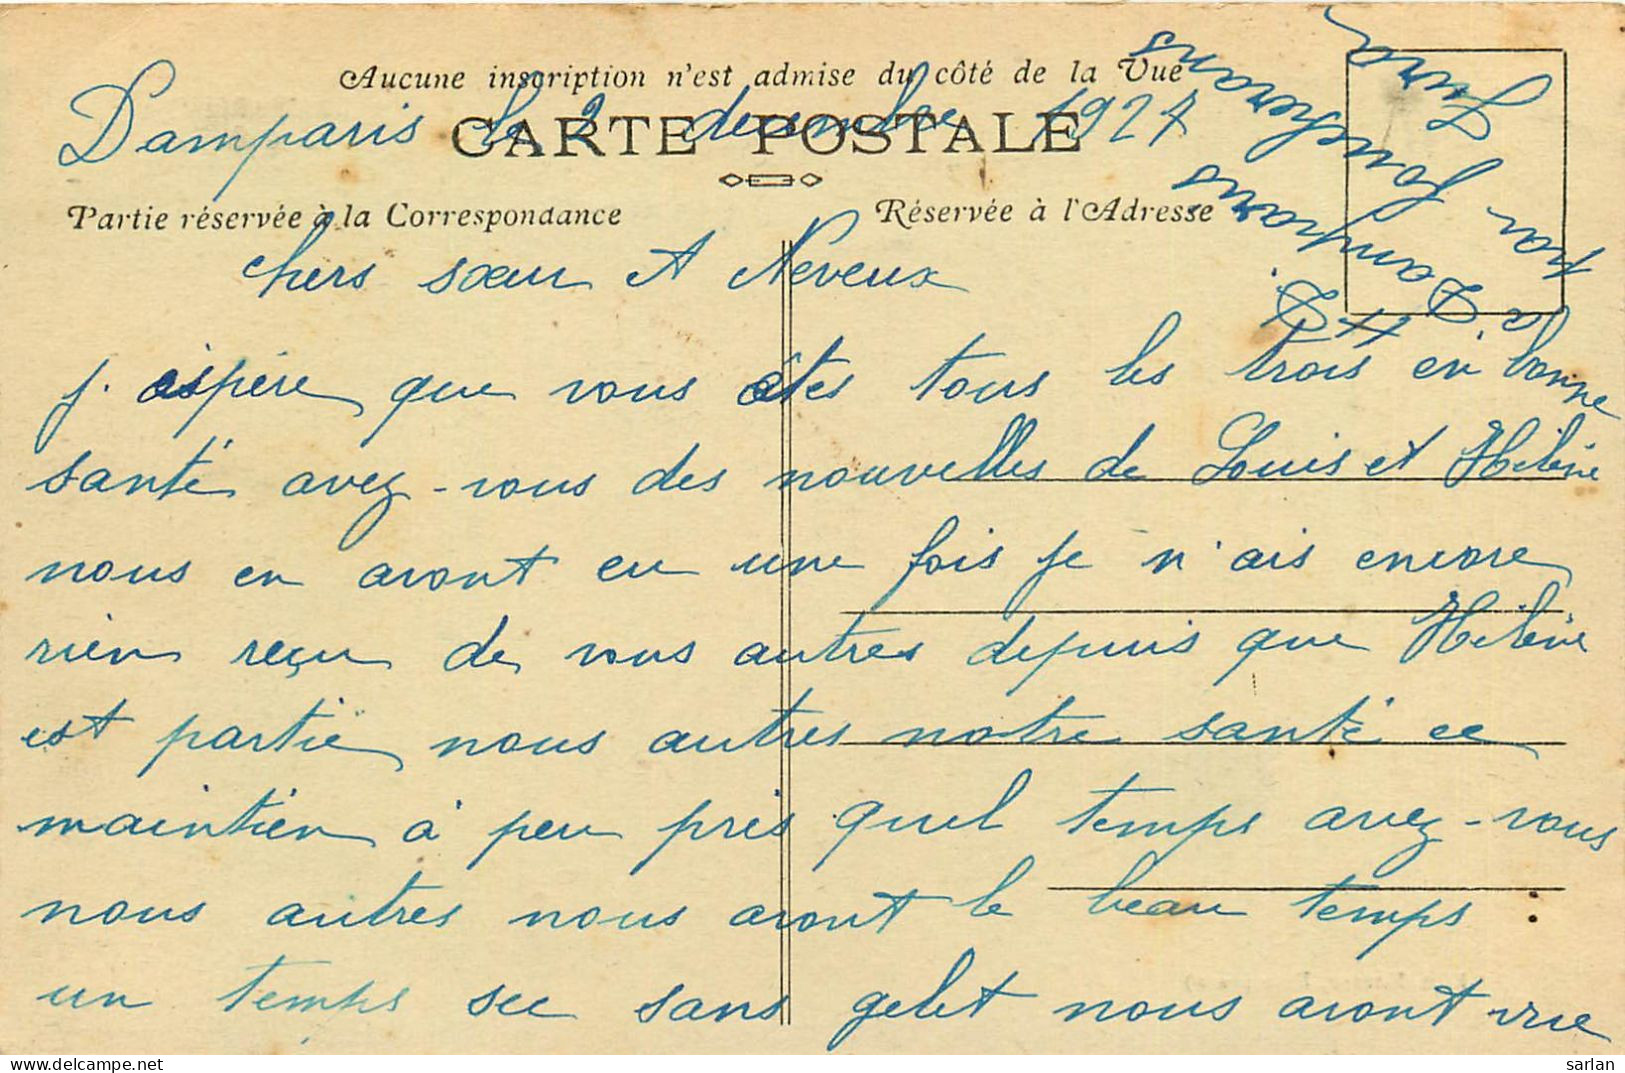 Aucune inscription n'est admise du côté de la Vue
Damparis le 2 desembre 1927
CARTE POSTALE
Partie réservée à la Correspondance
Réservée à l'Adresse
chers sœur et Neveux
j. espére que vous êtes tous les trois en bonne
santé avez-vous des nouvelles de Louis et Hélène
nous en avont eu une fois je n'ais encore
rien reçu de vous autres depuis que Hélène
est partie nous autres notre santé ce
maintien à peu près quel temps avez-vous
nous autres nous avont le beau temps :
un temps sec sans gelet nous avont vue
à Damparis
par
Jura
sarlan